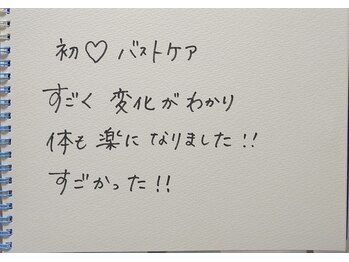 初♡バストケア
すごく 変化がわかり
体も 楽に なりました!!
すごかった!!